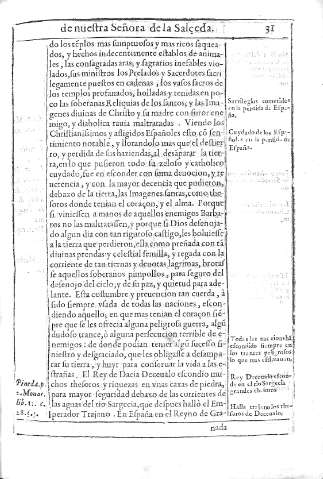 de nuestra Señora de la Salceda. 31
do los templos mas sumptuosos y mas ricos saquea-
dos, y hechos indecentemente establos de anima-
les, las consagradas aras, y sagrarios inefables vio-
lados, sus ministros los Prelados y Sacerdotes sacri-
legamente puestos en cadenas, los vasos sacros de
los templos profanados, holladas y tenidas en po-
co las soberanas Reliquias de los santos, y las Ima-
genes divinas de Christo y su madre con furor ene-
migo, y diabolica rauia maltratadas. Viendo los
Christianissimos y afligidos Españoles esto cõ sen-
timiento notable, y llorandolo mas que el destier
ro, y perdida de sus haziendas, al desaparar la tier
ra, en lo que pusieron todo su zeloso y catholico
cuydado, fue en esconder con suma deuocion, y re
uerencia, y con la mayor decencia que pudieron,
debaxo de tierra, las Imagenes santas, como the-
soros donde tenian el coraçon, y el alma. Porque
si viniessen a manos de aquellos enemigos Barba-
ros no las maltratassen, y porque si Dios desenoja-
do algun dia con tan riguroso castigo, les boluiesse
a la tierra que perdieron, ella como preñada con tã
diuinas prendas y celestial semilla, y regada con la
corriente de tan tiernas y deuotas lagrimas, brotas
se aquellos soberanos pimpollos, para seguro del
desenojo del cielo, y de su paz, y quietud para ade-
lante. Esta costumbre y preuencion tan cuerda, à
sido siempre vsada de todas las naciones, escon-
diendo aquello, en que mas tenian el coraçon siẽ-
pre que se les ofrecia alguna peligrosa guerra, algũ
dudoso trance, ò alguna persecucion terrible de e-
nemigos: de donde podian temer algũ sucesso si-
niestro y desgraciado, que les obligasse a desampa-
rar su tierra, y huyr para conseruar la vida a las es-
trañas. El Rey de Dacia Deceualo escondio mu-
chos thesoros y riquezas en vnas caxas de piedra,
para mayor seguridad debaxo de las corrientes de
las aguas del rio Sargecia, que despues hallò el Em-
perador Trajano. En España en el Reyno de Gra-
nada
Sacrilegios cometidos
en la perdida de Espa-
ña.
Cuydado de los Espa-
ñoles en la perdida de
España.
escondido siempre en
los trances peligrosos
lo que mas estimauan.
Rey Decebalo escon-
de en el rio Sargecia
grandes thesoros.
Halla Trajano los the-
soros de Decebalo.
Pineda. p.
2. Monar.